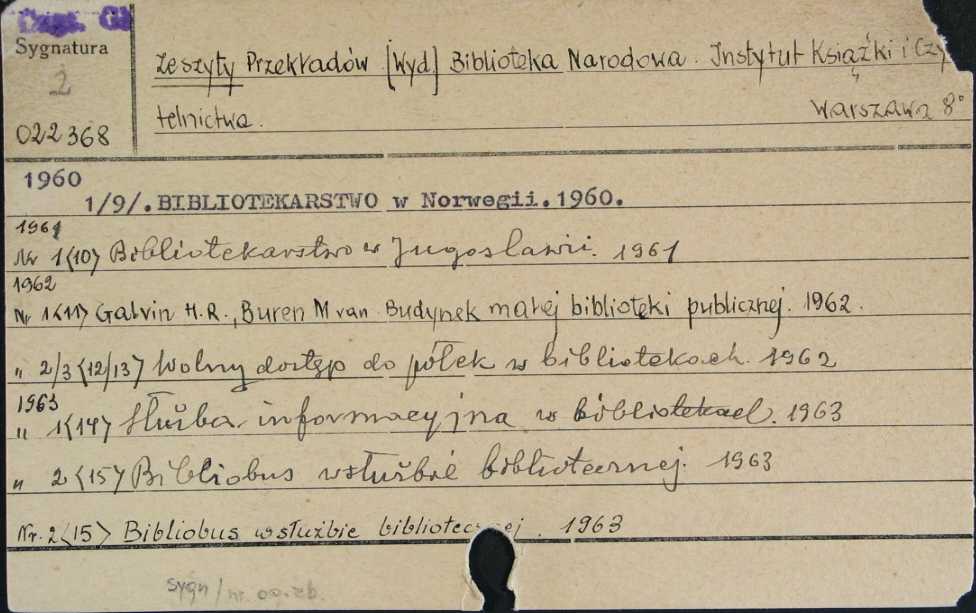 Czas. Gł
Sygnatura
2
022368
Zeszyty Przekładów [Wyd] Biblioteka Narodowa. Instytut Książki i Czy
telnictwa. Warszawa 8°
1960
1/9/. BIBLIOTEKARSTWO w Norwegii. 1960.
1961
Nr 1<10> Bibliotekarstwo w Jugosławii. 1961
1962
Nr 1<11> Galvin H.R., Buren M van Budynek małej biblioteki publicznej. 1962.
" 2/3<12/13> Wolny dostęp do półek w bibliotekach. 1962
1963
" 1<14> Służba informacyjna w bibliotekach. 1963
" 2<15> Bibliobus w służbie bibliotecznej. 1963
Nr. 2<15> Bibliobus w służbie bibliotecznej. 1963
sygn/nr.